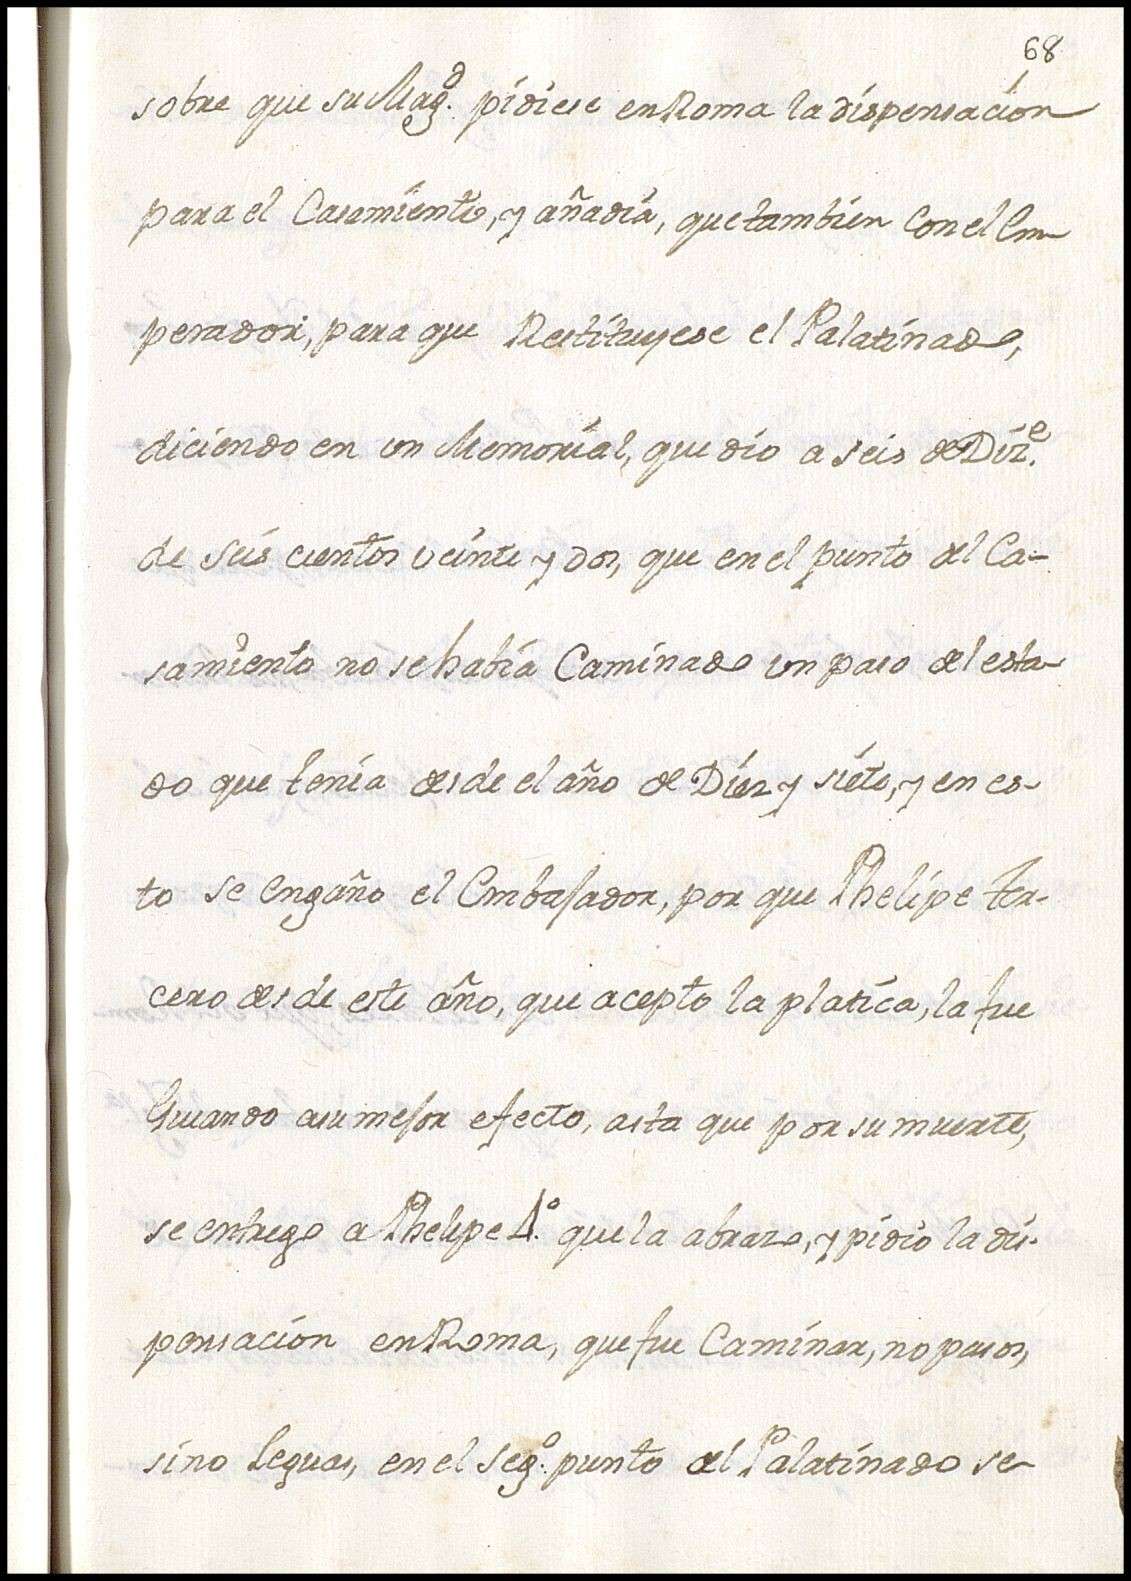 68
sobre que su Magd. pidiese en Roma la dispensacion
para el Casamiento, y añadia, que tambien con el Em-
perador, para que Restituyese el Palatinado,
diciendo en un Memorial, que dio a seis de Dize.
de seis cientos veinte y dos, que en el punto del Ca-
samiento no se habia Caminado un paso del esta-
do que tenia desde el año de Diez y siete, y en es-
to se engaño el Embajador, por que Phelipe ter-
cero desde este año, que acepto la platica, la fue
Guiando a su mejor efecto, asta que por su muerte,
se entrego a Phelipe 4.º que la abrazo, y pidio la dis-
pensacion en Roma, que fue Caminar, no pasos,
sino Leguas, en el Seg.º punto del Palatinado se